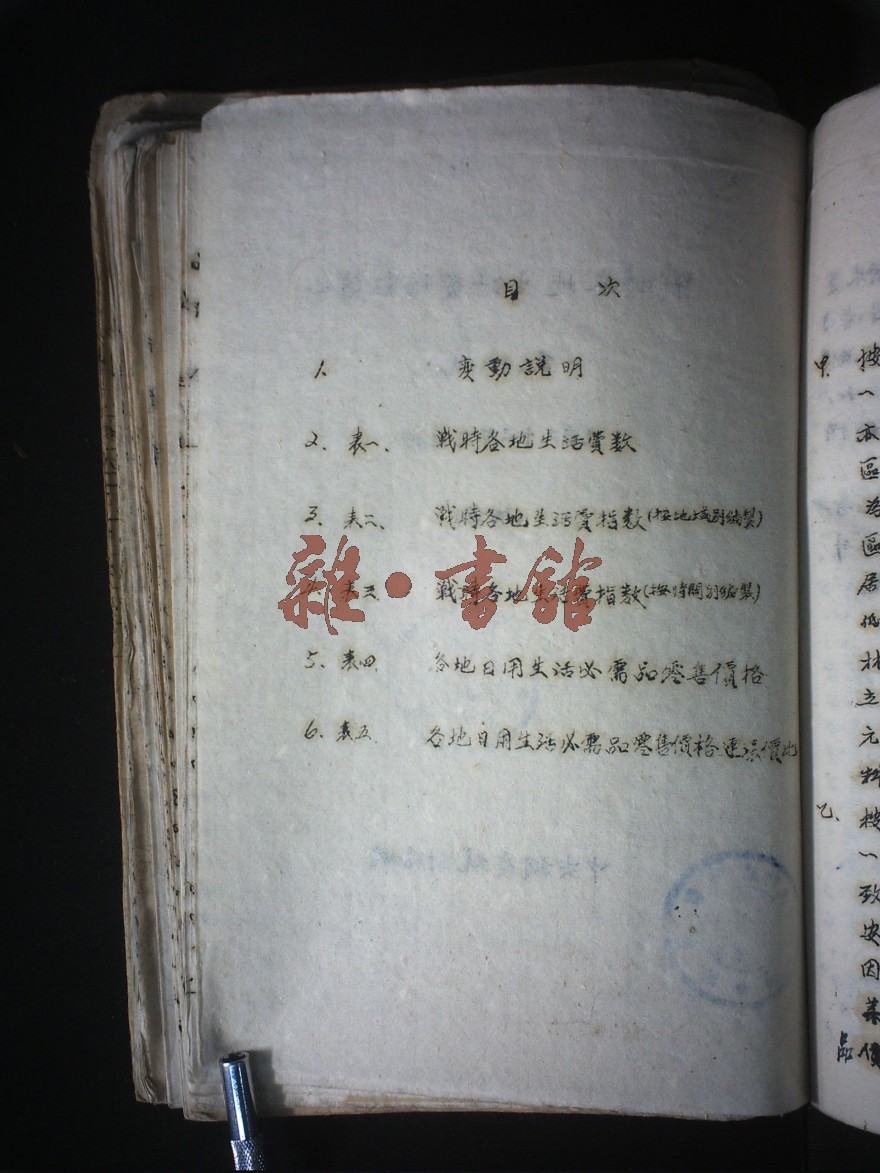 目 次
1. 变動説明
2、表一、 戰時各地生活費数
3、表二、 戰時各地生活費指数(按地域别編製)
4、表三 戰時各地生活費指数(按時間别編製)
5、表四 各地日用生活必需品零售價格
6、表五 各地日用生活必需品零售價格連環價比
雜·書館
甲、
按
一
亦
區
為
區
居
低
材
立
元
料
乙、
按
一
致
安
因
菜
價
品